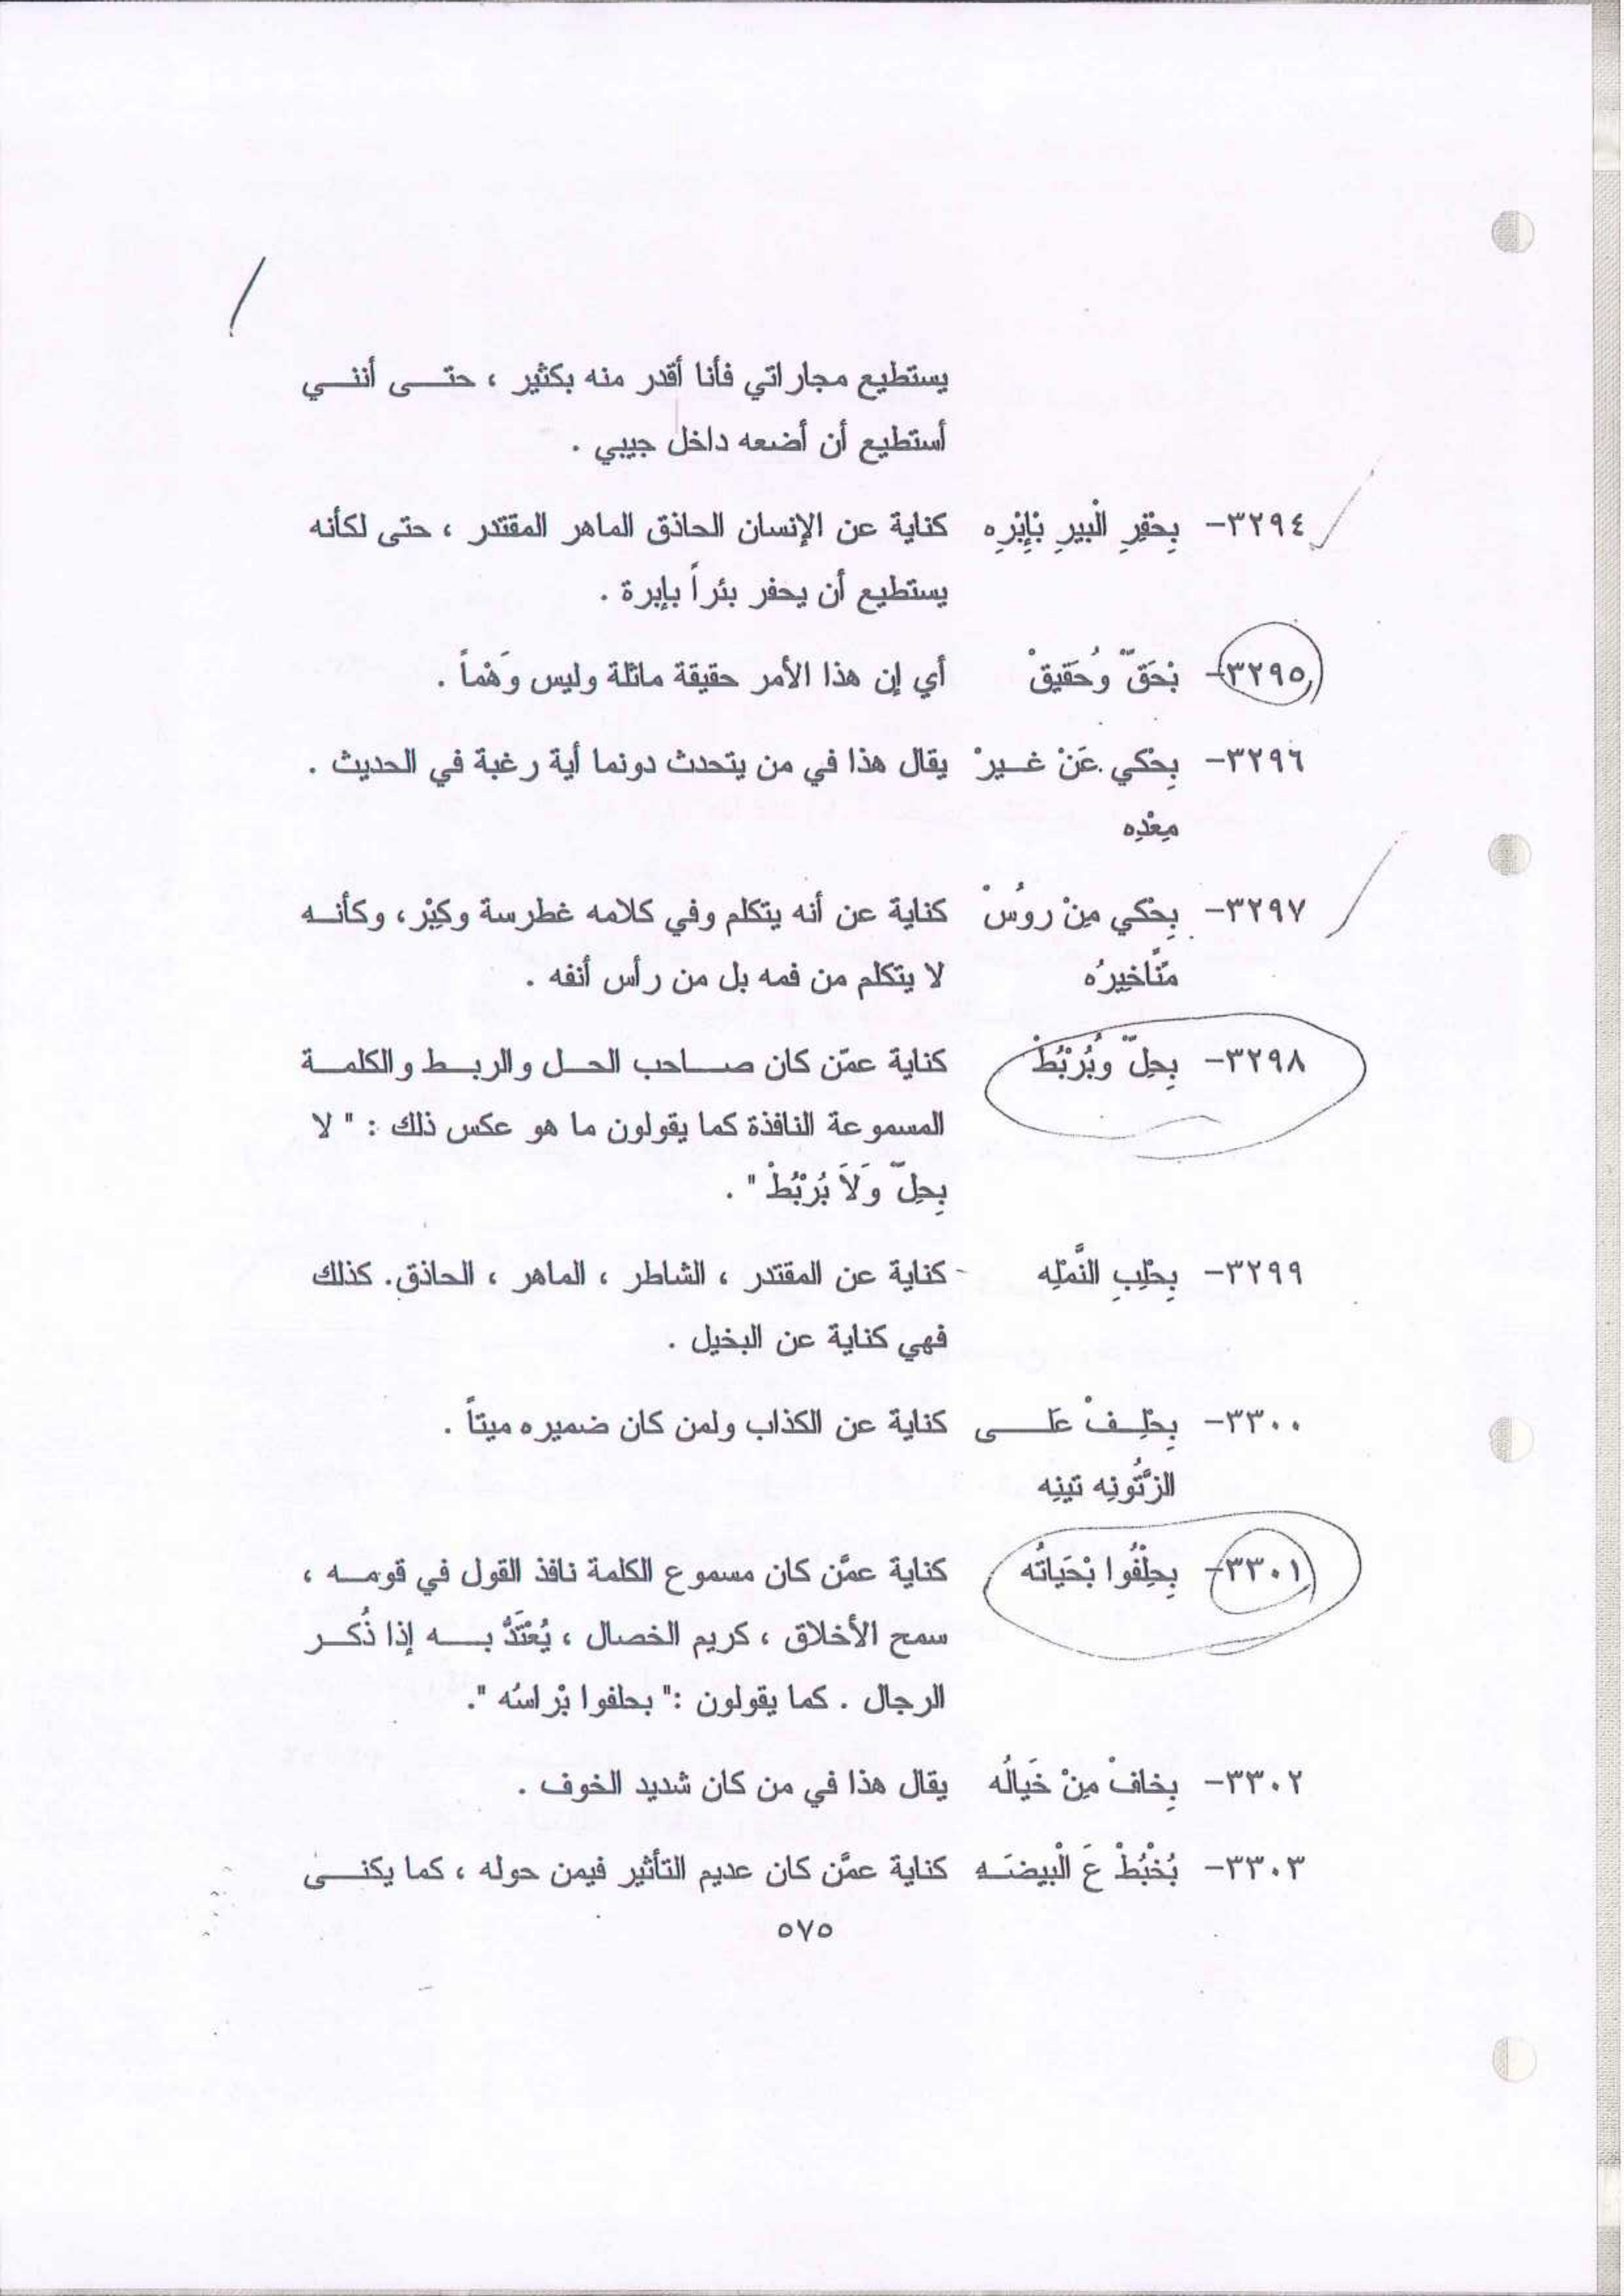 يستطيع مجاراتي فأنا أقدر منه بكثير ، حتى أنني
أستطيع أن أضعه داخل جيبي .
٣٢٩٤- بِحْفِرِ الْبيرِ بْإِبْرِه كناية عن الإنسان الحاذق الماهر المقتدر ، حتى لكأنه
يستطيع أن يحفر بئراً بإبرة .
٣٢٩٥- بْحَقّ وُحَقيقْ أي إن هذا الأمر حقيقة ماثلة وليس وَهْماً .
٣٢٩٦- بِحْكي عَنْ غيرْ يقال هذا في من يتحدث دونما أية رغبة في الحديث .
مِعْدِه
٣٢٩٧- بِحْكي مِنْ روُسْ كناية عن أنه يتكلم وفي كلامه غطرسة وكِبْر، وكأنه
مَنَّاخيرُه لا يتكلم من فمه بل من رأس أنفه .
٣٢٩٨- بِحِلّ وُبُرْبُطْ كناية عمّن كان صاحب الحل والربط والكلمة
المسموعة النافذة كما يقولون ما هو عكس ذلك : " لا
بِحِلّ وَلاَ بُرْبُطْ " .
٣٢٩٩- بِحْلِبِ النَّمْلِه - كناية عن المقتدر ، الشاطر ، الماهر ، الحاذق. كذلك
فهي كناية عن البخيل .
٣٣٠٠- بِحْلِفْ عَلى كناية عن الكذاب ولمن كان ضميره ميتاً .
الزَّتُونِه تينِه
٣٣٠١- بِحِلْفُوا بْحَيَاتُه كناية عمَّن كان مسموع الكلمة نافذ القول في قومه ،
سمح الأخلاق ، كريم الخصال ، يُعْتَدُّ به إذا ذُكر
الرجال . كما يقولون :" بحلفوا بْراسُه ".
٣٣٠٢- بِخافْ مِنْ خَيالُه يقال هذا في من كان شديد الخوف .
٣٣٠٣- بُخْبُطْ عَ الْبيضَه كناية عمَّن كان عديم التأثير فيمن حوله ، كما يكنى
٥٧٥